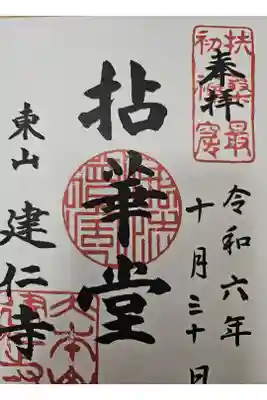 奉拝
扶桑最
初禅窟
令和六年
十月三十日
拈華堂
東山
建仁寺